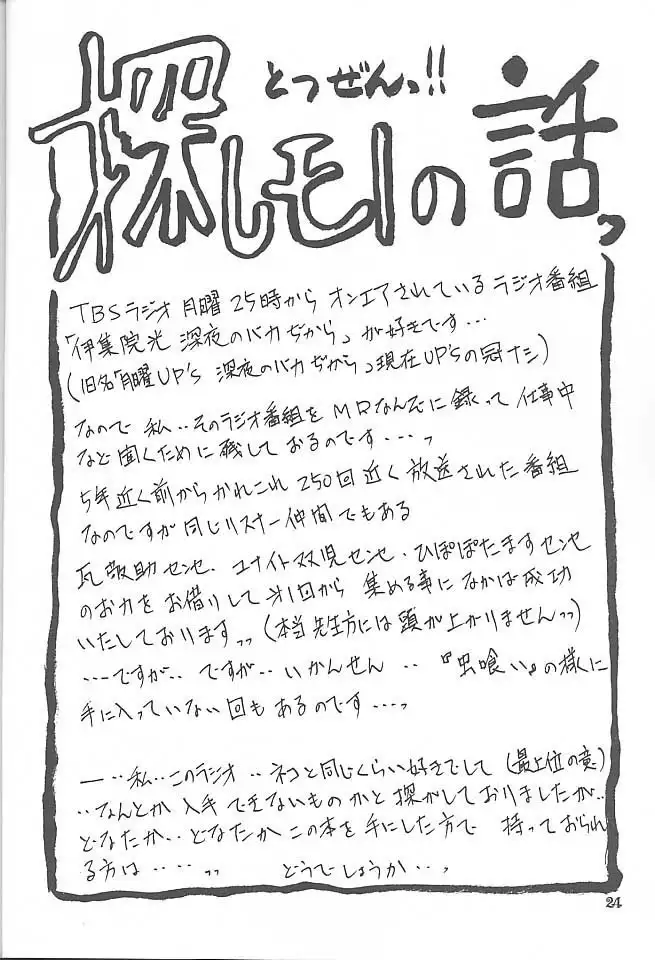 とつぜんっ!!
探しモノの話っ
TBSラジオ 月曜 25時から オンエアされている ラジオ番組
「伊集院光 深夜のバカぢから」が好きです…
(旧名「月曜UP'S 深夜のバカぢから」現在UP'Sの冠ナシ)
なので 私‥そのラジオ番組を MDなんぞに録って 仕事中
など聞くために 残して おるのです…‥っ
5年近く前から かれこれ 250回近く 放送された番組
なのですが 同じリスナー仲間でもある
瓦敬助センセ、ユナイト双児センセ・ひぽぽたますセンセ
のお力を お借りして 第1回から 集める事に なかば成功
いたしておりますっっ (本当 先生方には 頭が上がりませんっっ)
…‥ですが‥ ですが‥ いかんせん ‥ 『虫喰い』の様に
手に入っていない 回も あるのです…‥っ
― ‥私‥このラジオ ‥ネコと同じくらい好きでして (最上位の意)
‥なんとか 入手 できないもの かと 探がしておりましたが‥
どなたか‥ どなたか この本を 手にした方で 持っておられ
る方は ‥‥っっ どうでしょうか‥っ
24